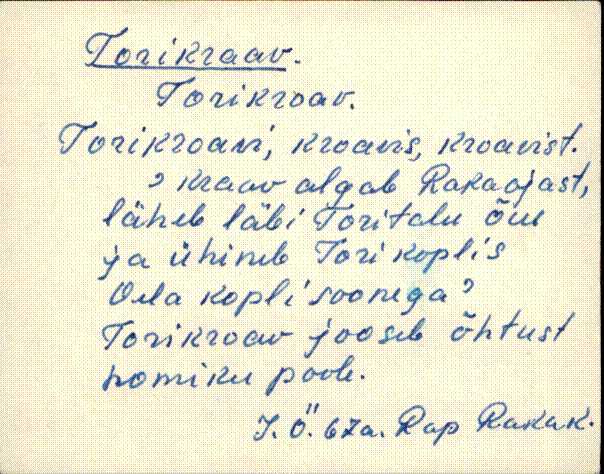 Torikraav.
Torikroav.
Torikroavi, kroavis, kroavist.
? kraav algab Rakaojast,
läheb läbi Toritalu õue
ja ühineb Torikoplis
Oela koplisoonega?
Torikroav jooseb õhtust
homiku poole.
J. Ö. 67a. Rap Rakak.